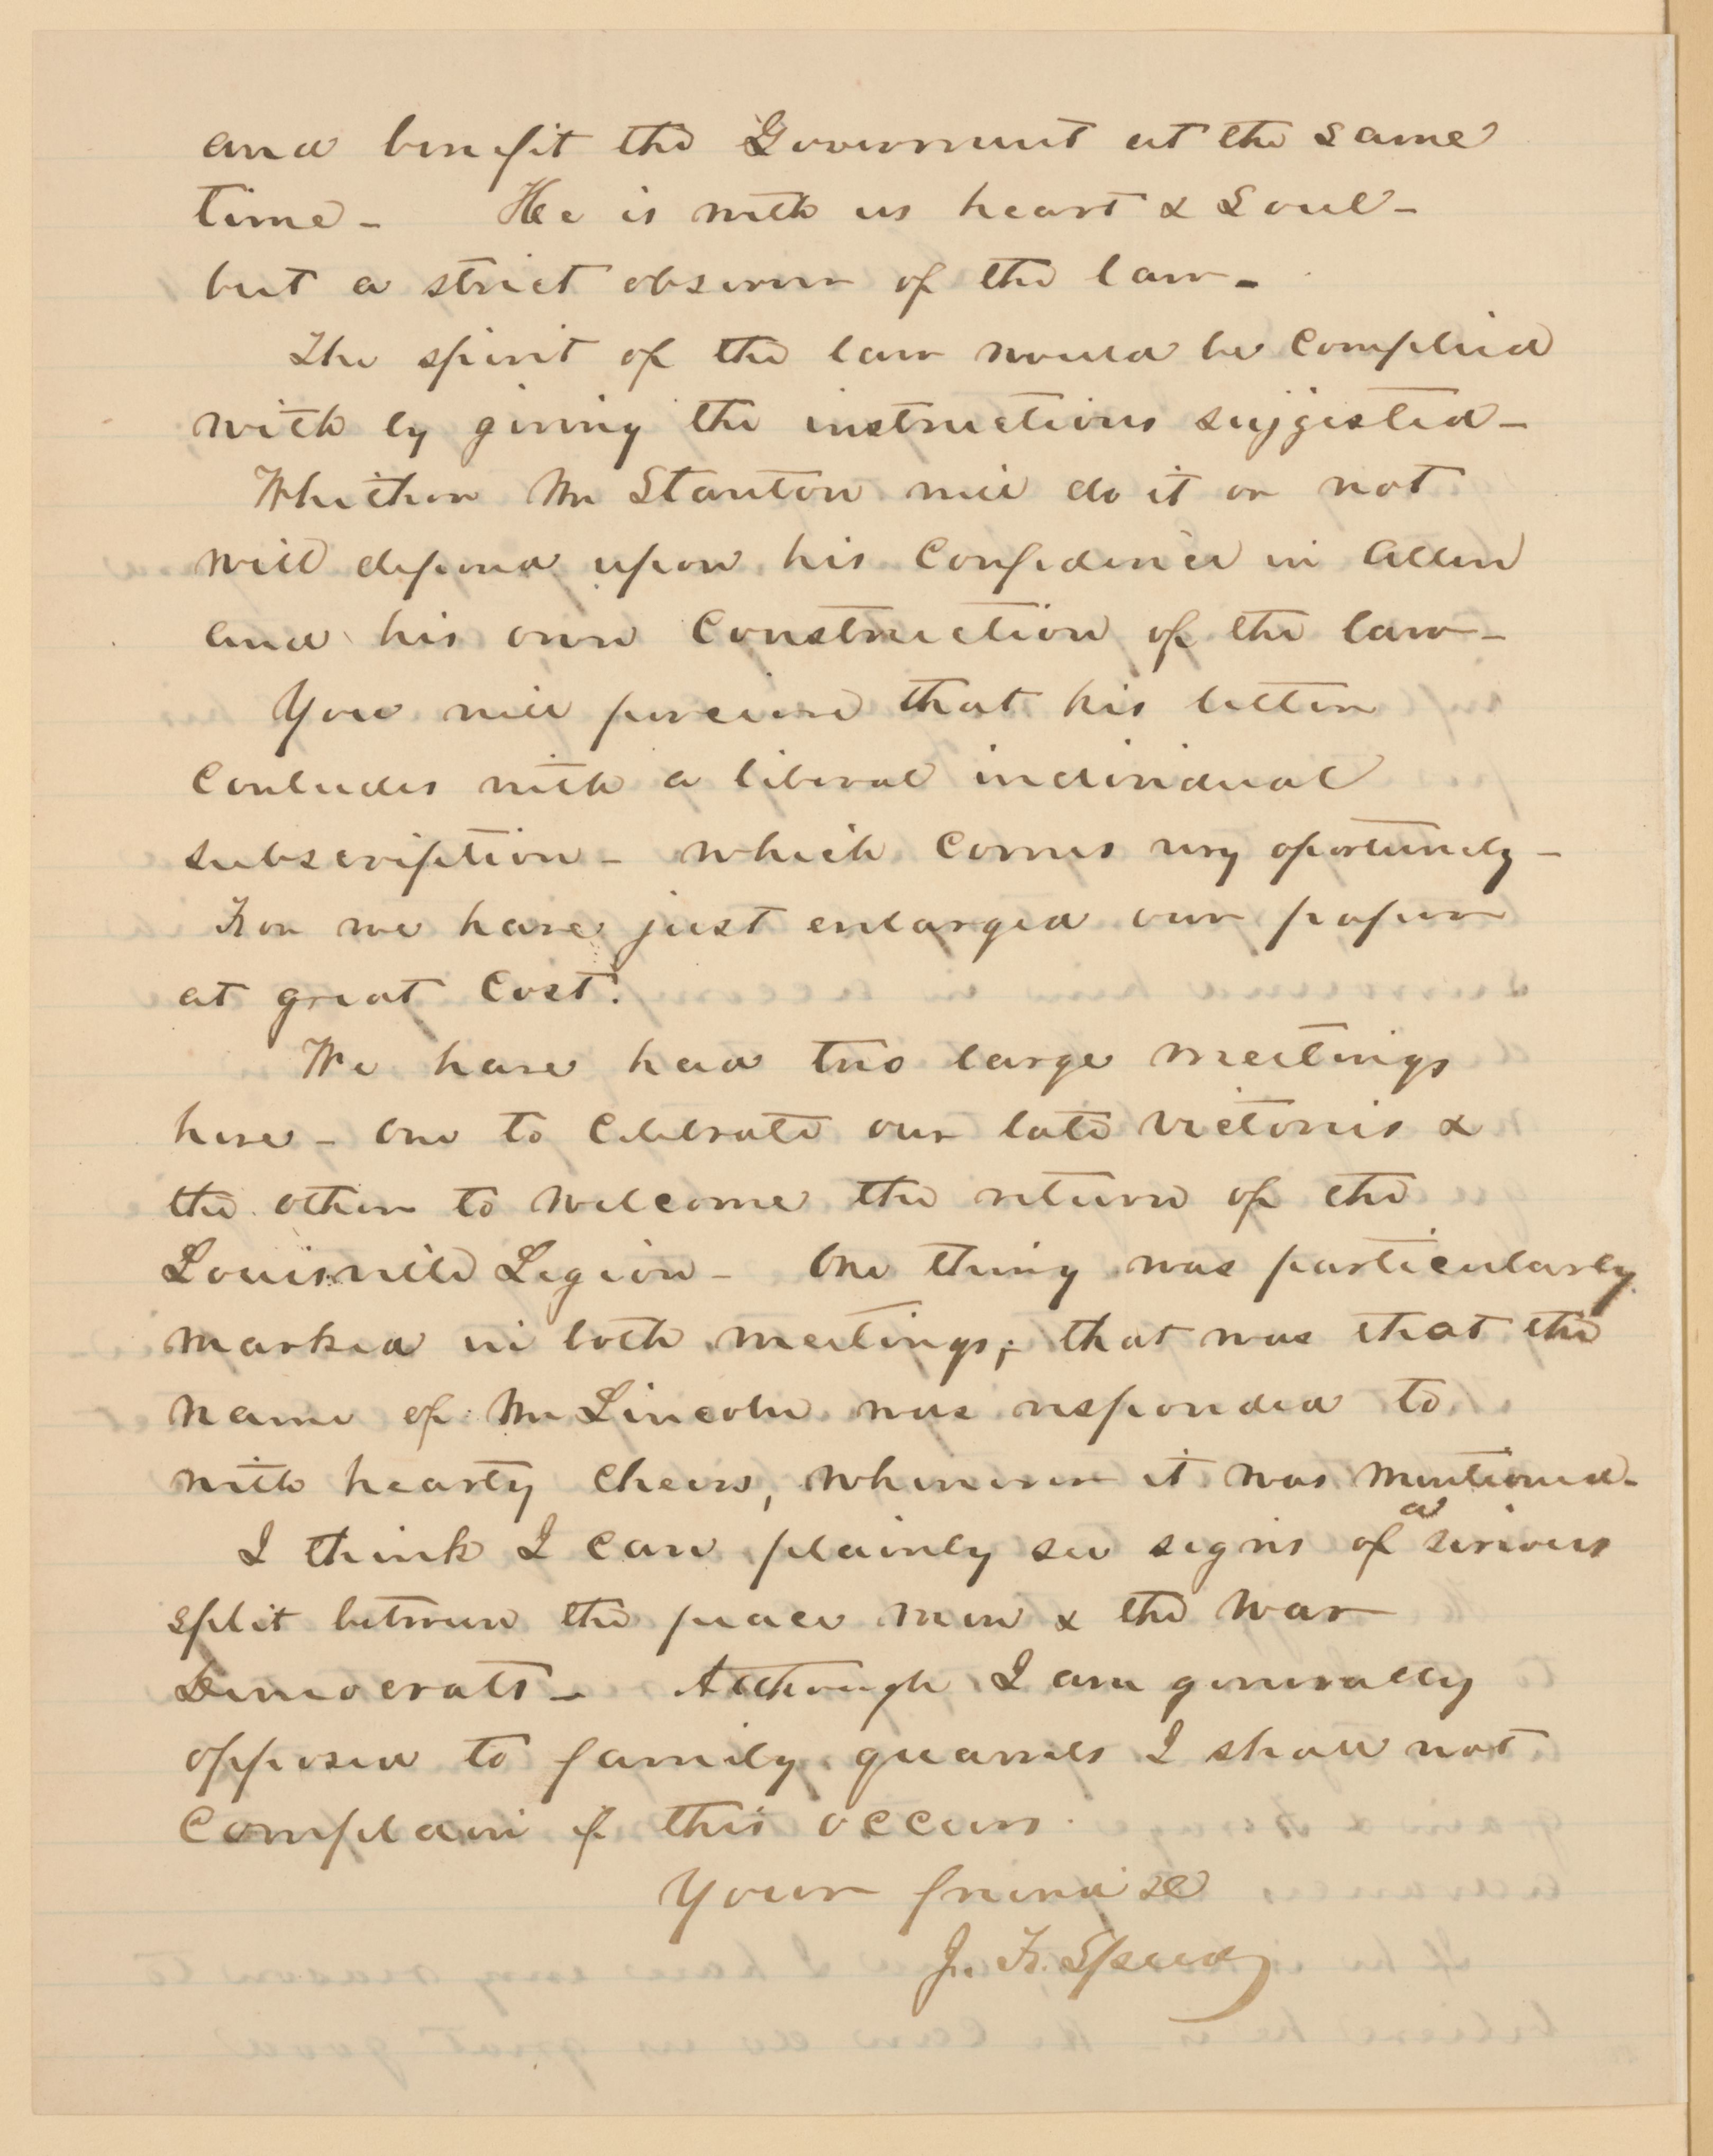 and benefit the Government at the same
time – He is with us heart & Soul –
but a strict observer of the law –
The spirit of the law would be complied
with by giving the instructions suggested –
Whether Mr Stanton will do it or not
will depend upon his confidence in Allen
and his own construction of the law –
You will perceive that his letter
concludes with a liberal individual
subscription – which comes very oportunely –
For we have just enlarged our paper
at great cost.
We have had two large meetings
here – One to celebrate our late victories &
the other to welcome the return of the
Louisville Legion – One thing was particularly
marked in both meetings; that was that the
name of Mr Lincoln was responded to
with hearty cheers, whenever it was mentioned –
I think I can plainly see signs of a serious
split between the peace men & the War
Democrats – Although I am generally
opposed to family quarrels I shall not
complain if this occurs.
Your friend &c
J. F. Speed